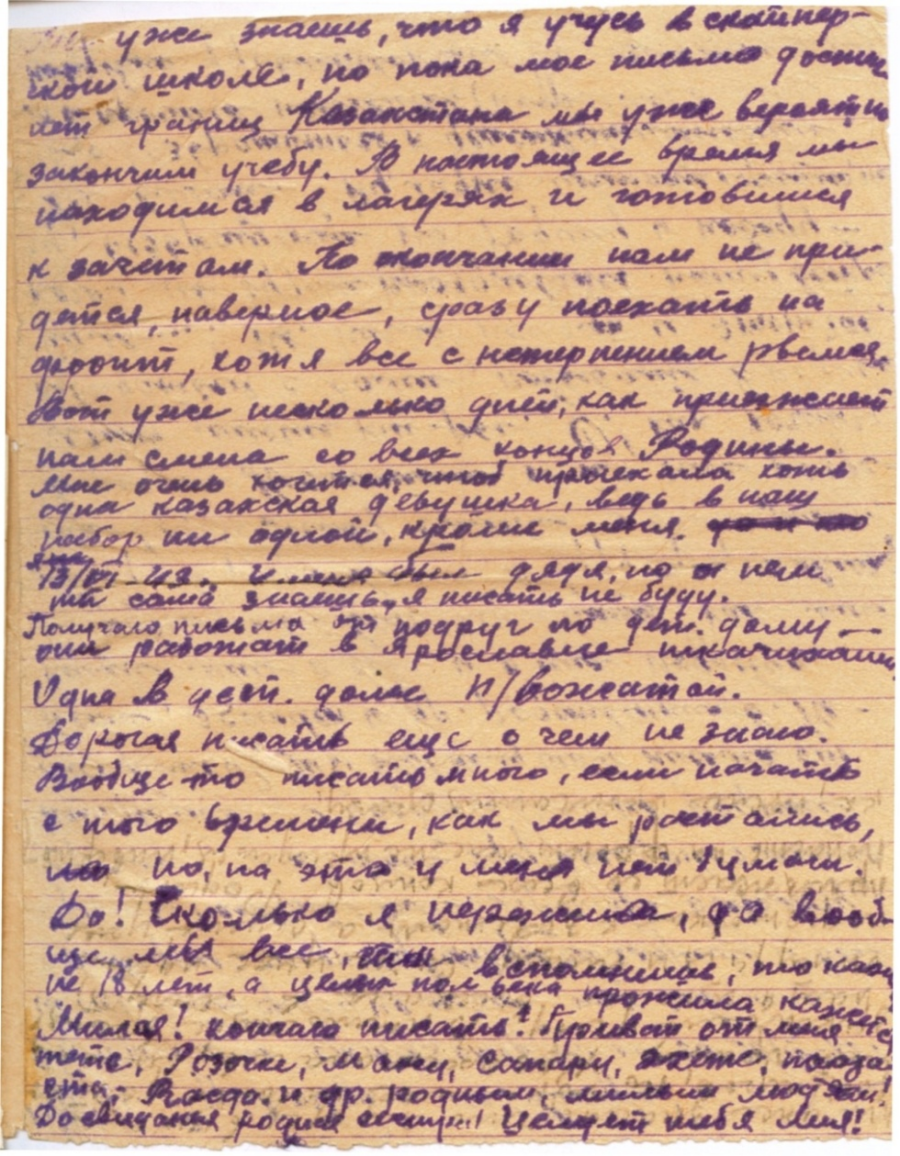 уже знаешь, что я учусь в снайпер-
ской школе, но пока мое письмо достиг-
нет границ Казахстана мы уже вероятно
закончим учебу. В настоящее время мы
находимся в лагерях и готовимся
к зачетам. По окончании нам не при-
дется, наверное, сразу поехать на
фронт, хотя все с нетерпением рвемся.
Вот уже несколько дней, как приезжает
нам смена со всех концов Родины.
Мне очень хочется, чтоб приехала хоть
одна казахская девушка, ведь в наш
набор ни одной, кроме меня.
У меня был дядя, но о нем
ты сама знаешь, я писать не буду.
Получаю письма от подруг по дет. дому
они работают в Ярославле ткачихами
Одна в дет. доме п/вожатой.
Дорогая писать еще о чем не знаю.
Вообще то писать много, если начать
с того времени, как мы расстались,
но, на это у меня нет бумаги.
Да! Сколько я пережила, да вооб-
ще мы все, вспомнишь, то как
не 18 лет, а целых пол века прожила кажется
Милая! кончаю писать! Привет от меня
тете, Розочке, маме, сапару, пожа-
та, Расда и др. родным, милым людям!
До свидания родная сестра! Целует тебя Лия!